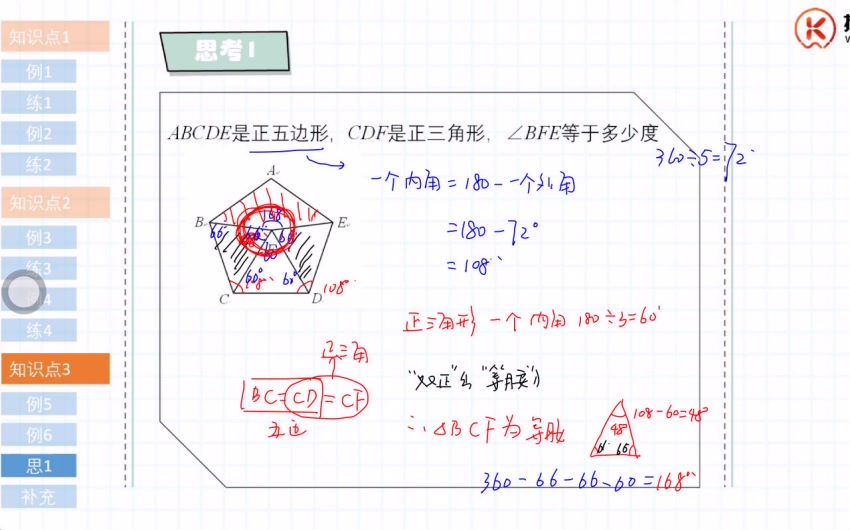 知识点1
例1
练1
例2
练2
知识点2
例3
练3
例4
练4
知识点3
例5
例6
思1
补充
思考1
ABCDE是正五边形，CDF是正三角形，∠BFE等于多少度
360÷5=72°
一个内角=180-一个外角
=180-72°
=108°
A
B
E
C
D
168°
66°
66°
66
60
60°
60°
108°
正三角形 一个内角 180÷3=60°
正三角
BC=CD=CF
五边
"双正"出"等腰"
∴△BCF为等腰
108-60=48°
48°
66°
66°
360-66-66-60=168°
K